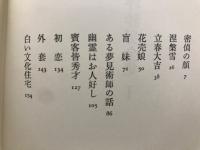 密偵の顔 7
涅槃雪 26
立春大吉 38
花売娘 50
盲妹 71
ある夢見術師の話 86
幽霊はお人好し 105
賓客皆秀才 127
初恋 134
外套 143
白い文化住宅 154